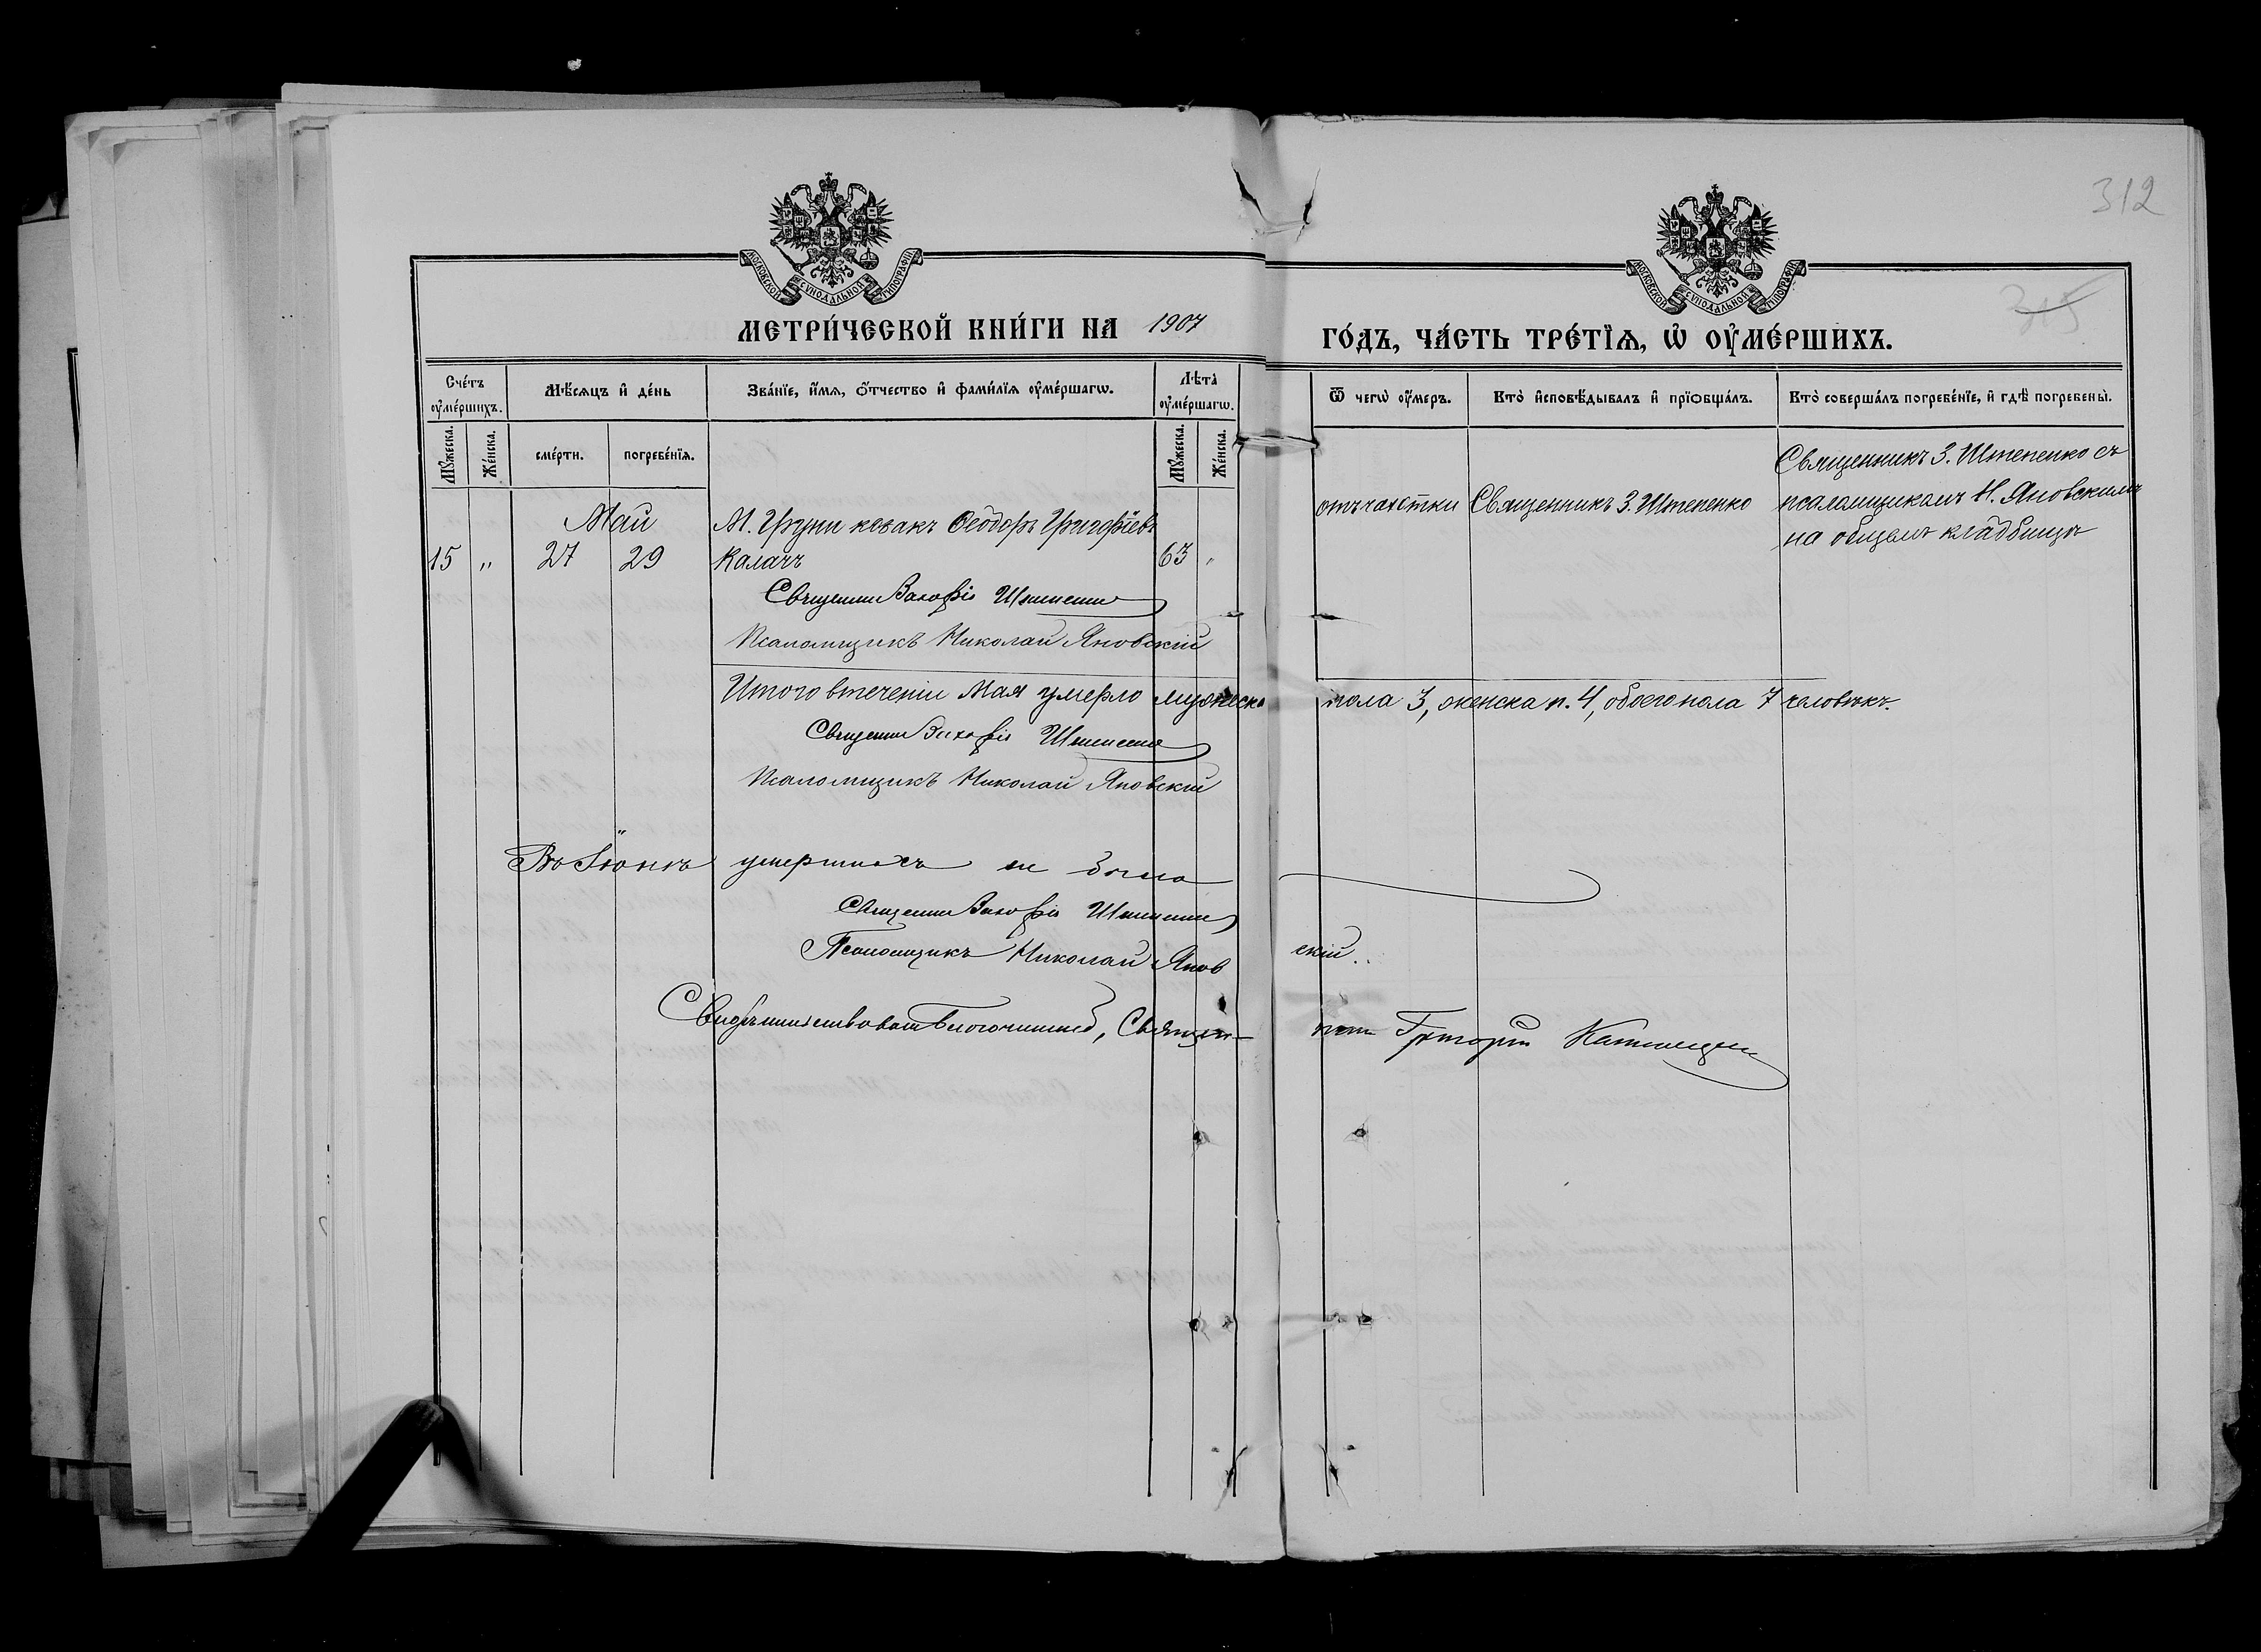 312
315
МОСКОВСКОЙ СѴНОДАЛЬНОЙ ТИПОГРАФІИ
МОСКОВСКОЙ СѴНОДАЛЬНОЙ ТИПОГРАФІИ
МЕТРИ́ЧЕСКОЙ КНИ́ГИ НА 1907 ГО́ДЪ, ЧА́СТЬ ТРЕ́ТЇѦ, Ѡ҆ ОУ҆МЕ́РШИХЪ.
Сче́тъ оу҆ме́ршихъ.
Мѣ́сѧцъ и҆ де́нь
Зва́нїе, и҆́мѧ, ѻ҆́тчество и҆ фами́лїѧ оу҆ме́ршагѡ.
Лѣта̀ оу҆ме́ршагѡ.
Ѿ чегѡ̀ оу҆́меръ.
Кто̀ и҆сповѣ́дывалъ и҆ прїѡбща́лъ.
Кто̀ соверша́лъ погребе́нїе, и҆ гдѣ̀ погребены̀.
Мꙋ́жеска.
Же́нска.
сме́рти.
погребе́нїѧ.
Мꙋ́жеска.
Же́нска.
Май
15 " 27 29 М. Груни козакъ Ѳеодоръ Григоріевъ
Калачъ 63 "
отъ чахотки
Священникъ З. Штепенко
Священникъ З. Штепенко съ
псаломщикомъ Н. Яновскимъ
на общемъ кладбищѣ
Священникъ Захарія Штепенко
Псаломщикъ Николай Яновскій
Итого втеченіи Мая умерло мужеска пола 3, женска п. 4, обоего пола 7 человѣкъ.
Священникъ Захарія Штепенко
Псаломщикъ Николай Яновскій
Въ Іюнѣ умершихъ не было
Священникъ Захарія Штепенко
Псаломщикъ Николай Яновскій.
Свидѣтельствовалъ Благочинный, Священникъ Григорій